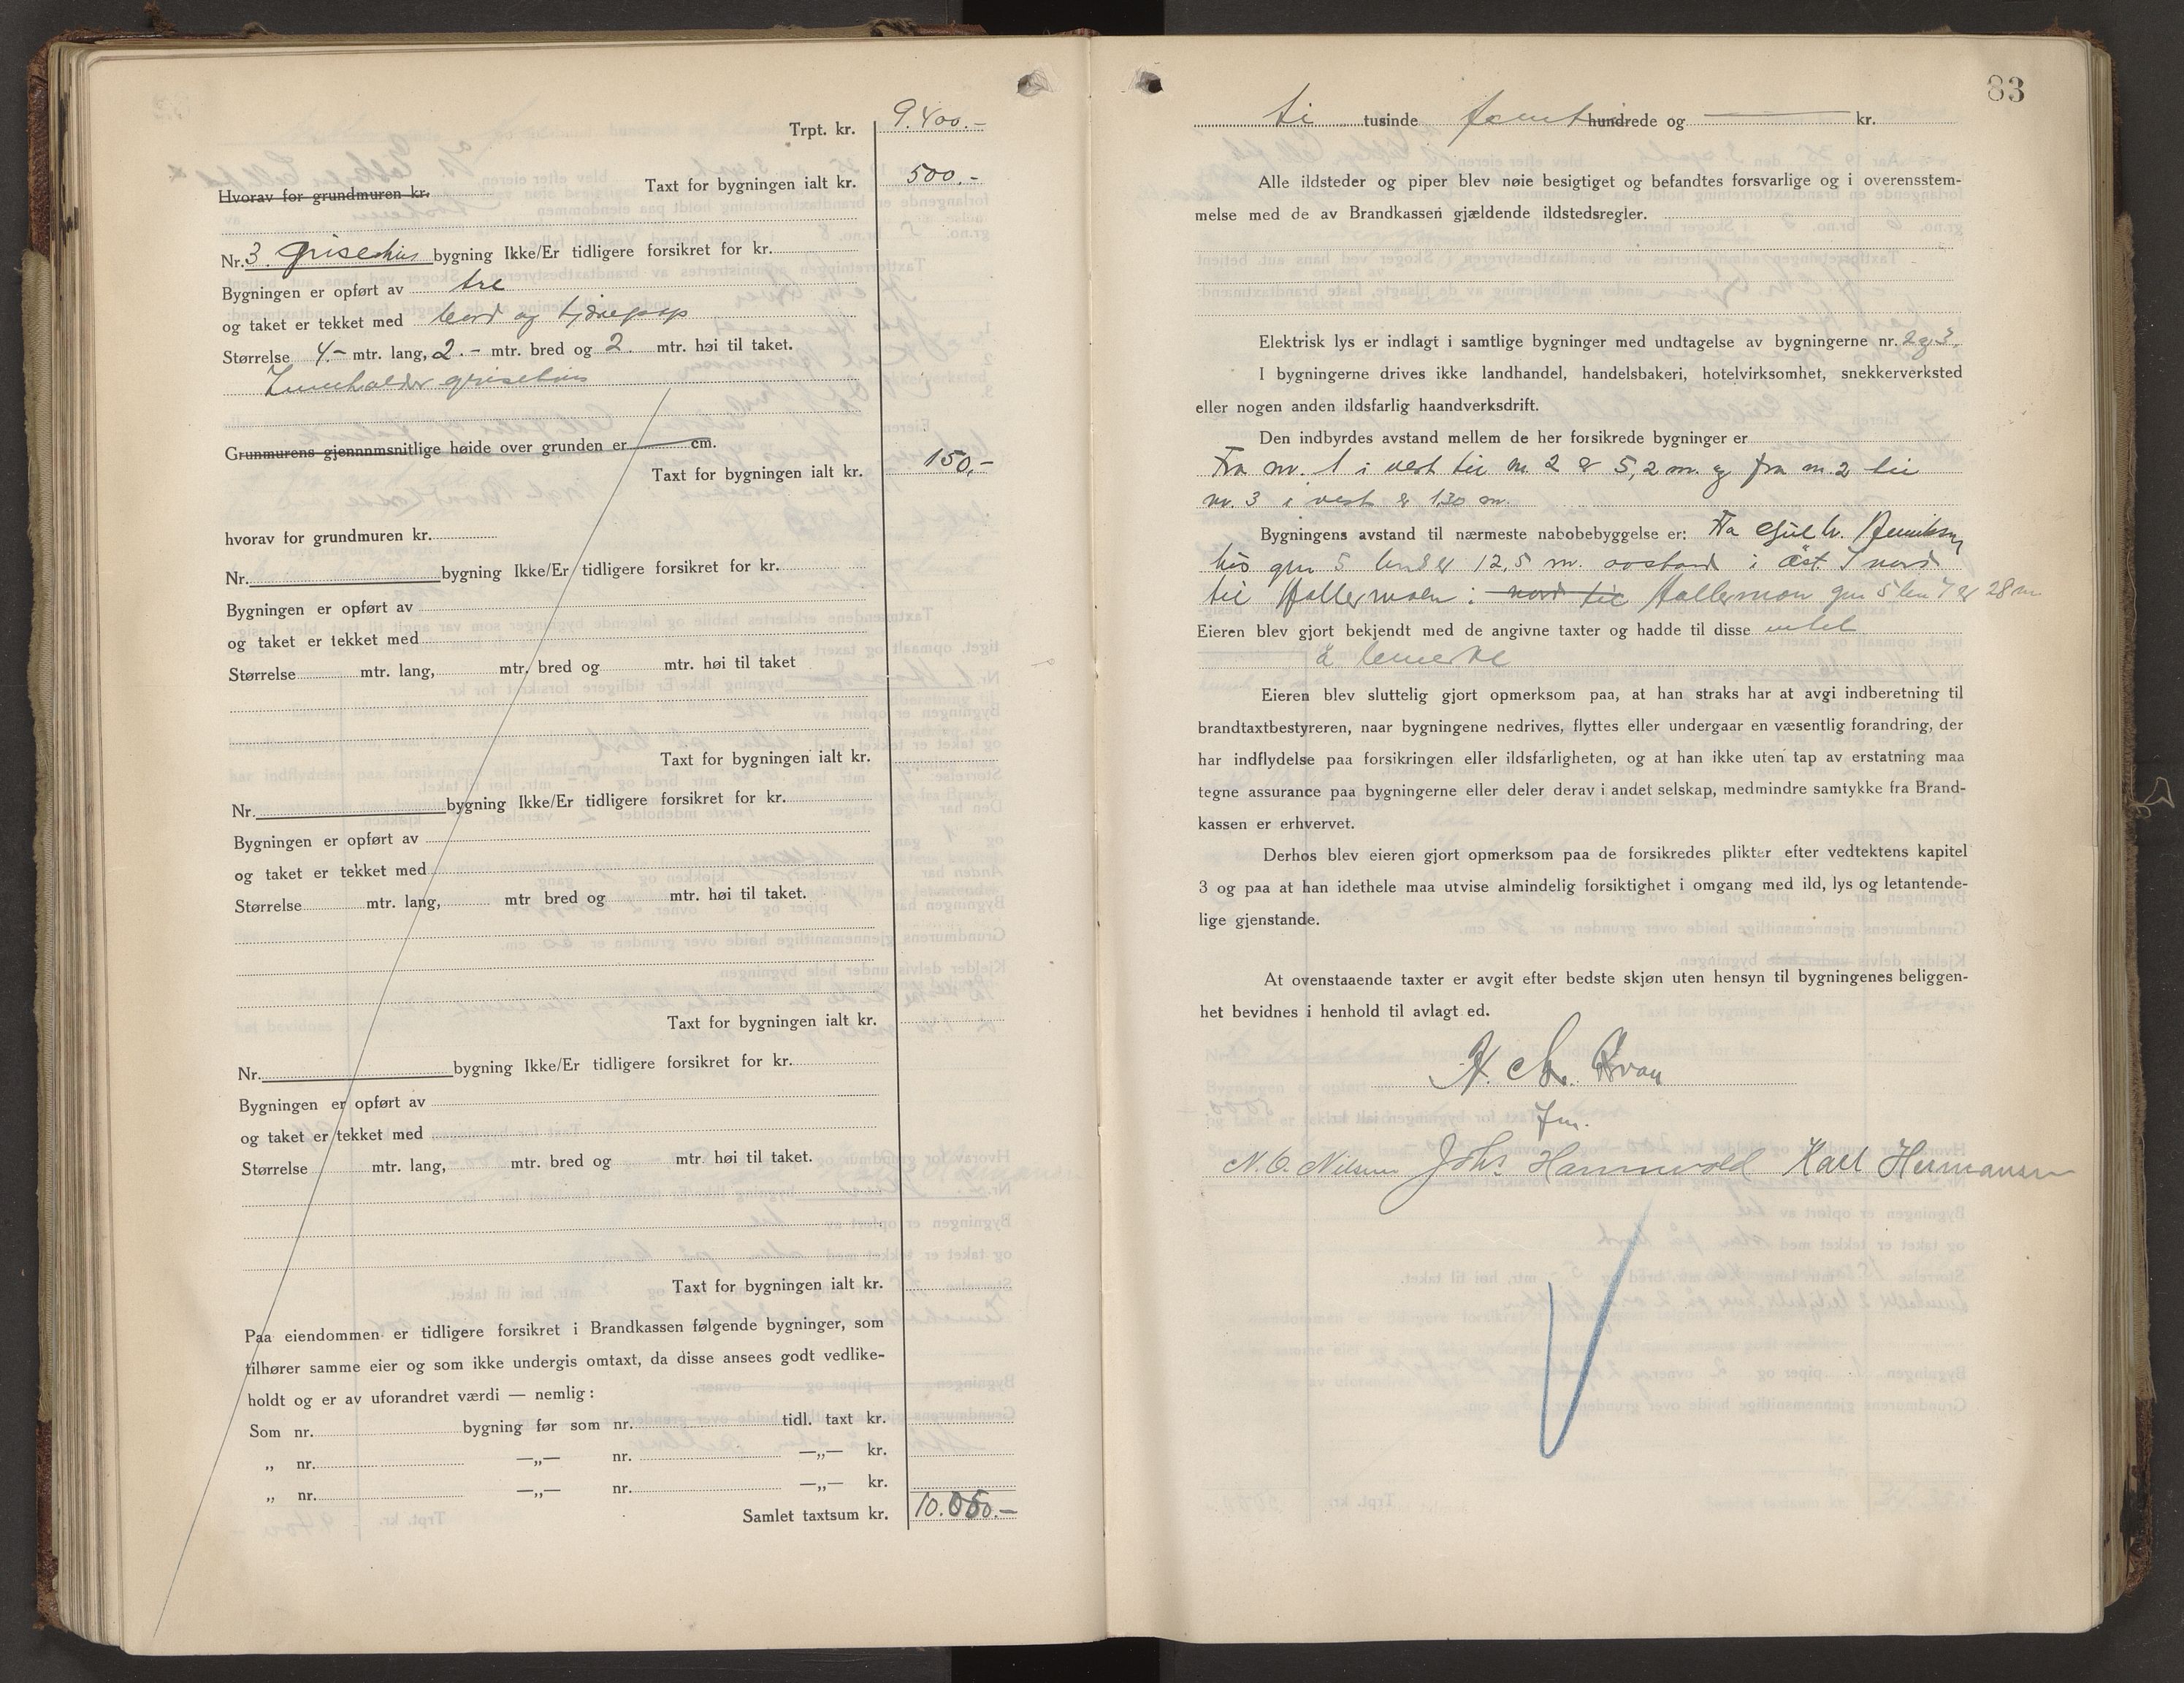 Trpt. kr. 9.400.-
Hvorav for grundmuren kr. Taxt for bygningen ialt kr. 500.-
Nr. 3. Grisehus bygning Ikke/Er tidligere forsikret for kr.
Bygningen er opført av tre
og taket er tekket med bord og tjærepap
Størrelse 4.- mtr. lang, 2.- mtr. bred og 2. mtr. høi til taket.
Inneholder grisehus
Grunmurens gjennnmsnitlige høide over grunden er cm.
Taxt for bygningen ialt kr. 150.-
hvorav for grundmuren kr.
Nr. bygning Ikke/Er tidligere forsikret for kr.
Bygningen er opført av
og taket er tekket med
Størrelse mtr. lang, mtr. bred og mtr. høi til taket
Taxt for bygningen ialt kr.
Nr. bygning Ikke/Er tidligere forsikret for kr.
Bygningen er opført av
og taket er tekket med
Størrelse mtr. lang, mtr bred og mtr. høi til taket.
Taxt for bygningen ialt kr.
Nr. bygning Ikke/Er tidligere forsikret for kr.
Bygningen er opført av
og taket er tekket med
Størrelse mtr. lang, mtr. bred og mtr. høi til taket.
Taxt for bygningen ialt kr.
Paa eiendommen er tidligere forsikret i Brandkassen følgende bygninger, som
tilhører samme eier og som ikke undergis omtaxt, da disse ansees godt vedlike-
holdt og er av uforandret værdi — nemlig:
Som nr. bygning før som nr. tidl. taxt kr.
„ nr. —„— nr. —„— kr.
„ nr. —„— nr. —„— kr.
Samlet taxtsum kr. 10.050.-
83
ti tusinde femti hundrede og kr.
Alle ildsteder og piper blev nøie besigtiget og befandtes forsvarlige og i overensstem-
melse med de av Brandkassen gjældende ildstedsregler.
Elektrisk lys er indlagt i samtlige bygninger med undtagelse av bygningerne nr. 2 og 3.
I bygningerne drives ikke landhandel, handelsbakeri, hotelvirksomhet, snekkerverksted
eller nogen anden ildsfarlig haandverksdrift.
Den indbyrdes avstand mellem de her forsikrede bygninger er
Fra nr. 1 i vest til nr. 2 er 5,2 m. og fra nr. 2 til
nr. 3 i vest er 1.30 m.
Bygningens avstand til nærmeste nabobebyggelse er: Fra
hus gnr 5 er 12,5 m. avstand i øst I nord
til Hallermoen i nord til Hallermoen gnr 5 bnr 7 er 28 m.
Eieren blev gjort bekjendt med de angivne taxter og hadde til disse intet
å bemerke
Eieren blev sluttelig gjort opmerksom paa, at han straks har at avgi indberetning til
brandtaxtbestyreren, naar bygningene nedrives, flyttes eller undergaar en væsentlig forandring, der
har indflydelse paa forsikringen eller ildsfarligheten, og at han ikke uten tap av erstatning maa
tegne assurance paa bygningerne eller deler derav i andet selskap, medmindre samtykke fra Brand-
kassen er erhvervet.
Derhos blev eieren gjort opmerksom paa de forsikredes plikter efter vedtektens kapitel
3 og paa at han idethele maa utvise almindelig forsiktighet i omgang med ild, lys og letantende-
lige gjenstande.
At ovenstaaende taxter er avgit efter bedste skjøn uten hensyn til bygningenes beliggen-
het bevidnes i henhold til avlagt ed.
H. Chr. Kvan
fm.
N. O. Nilsen Johs Hannevold Karl Hermansen